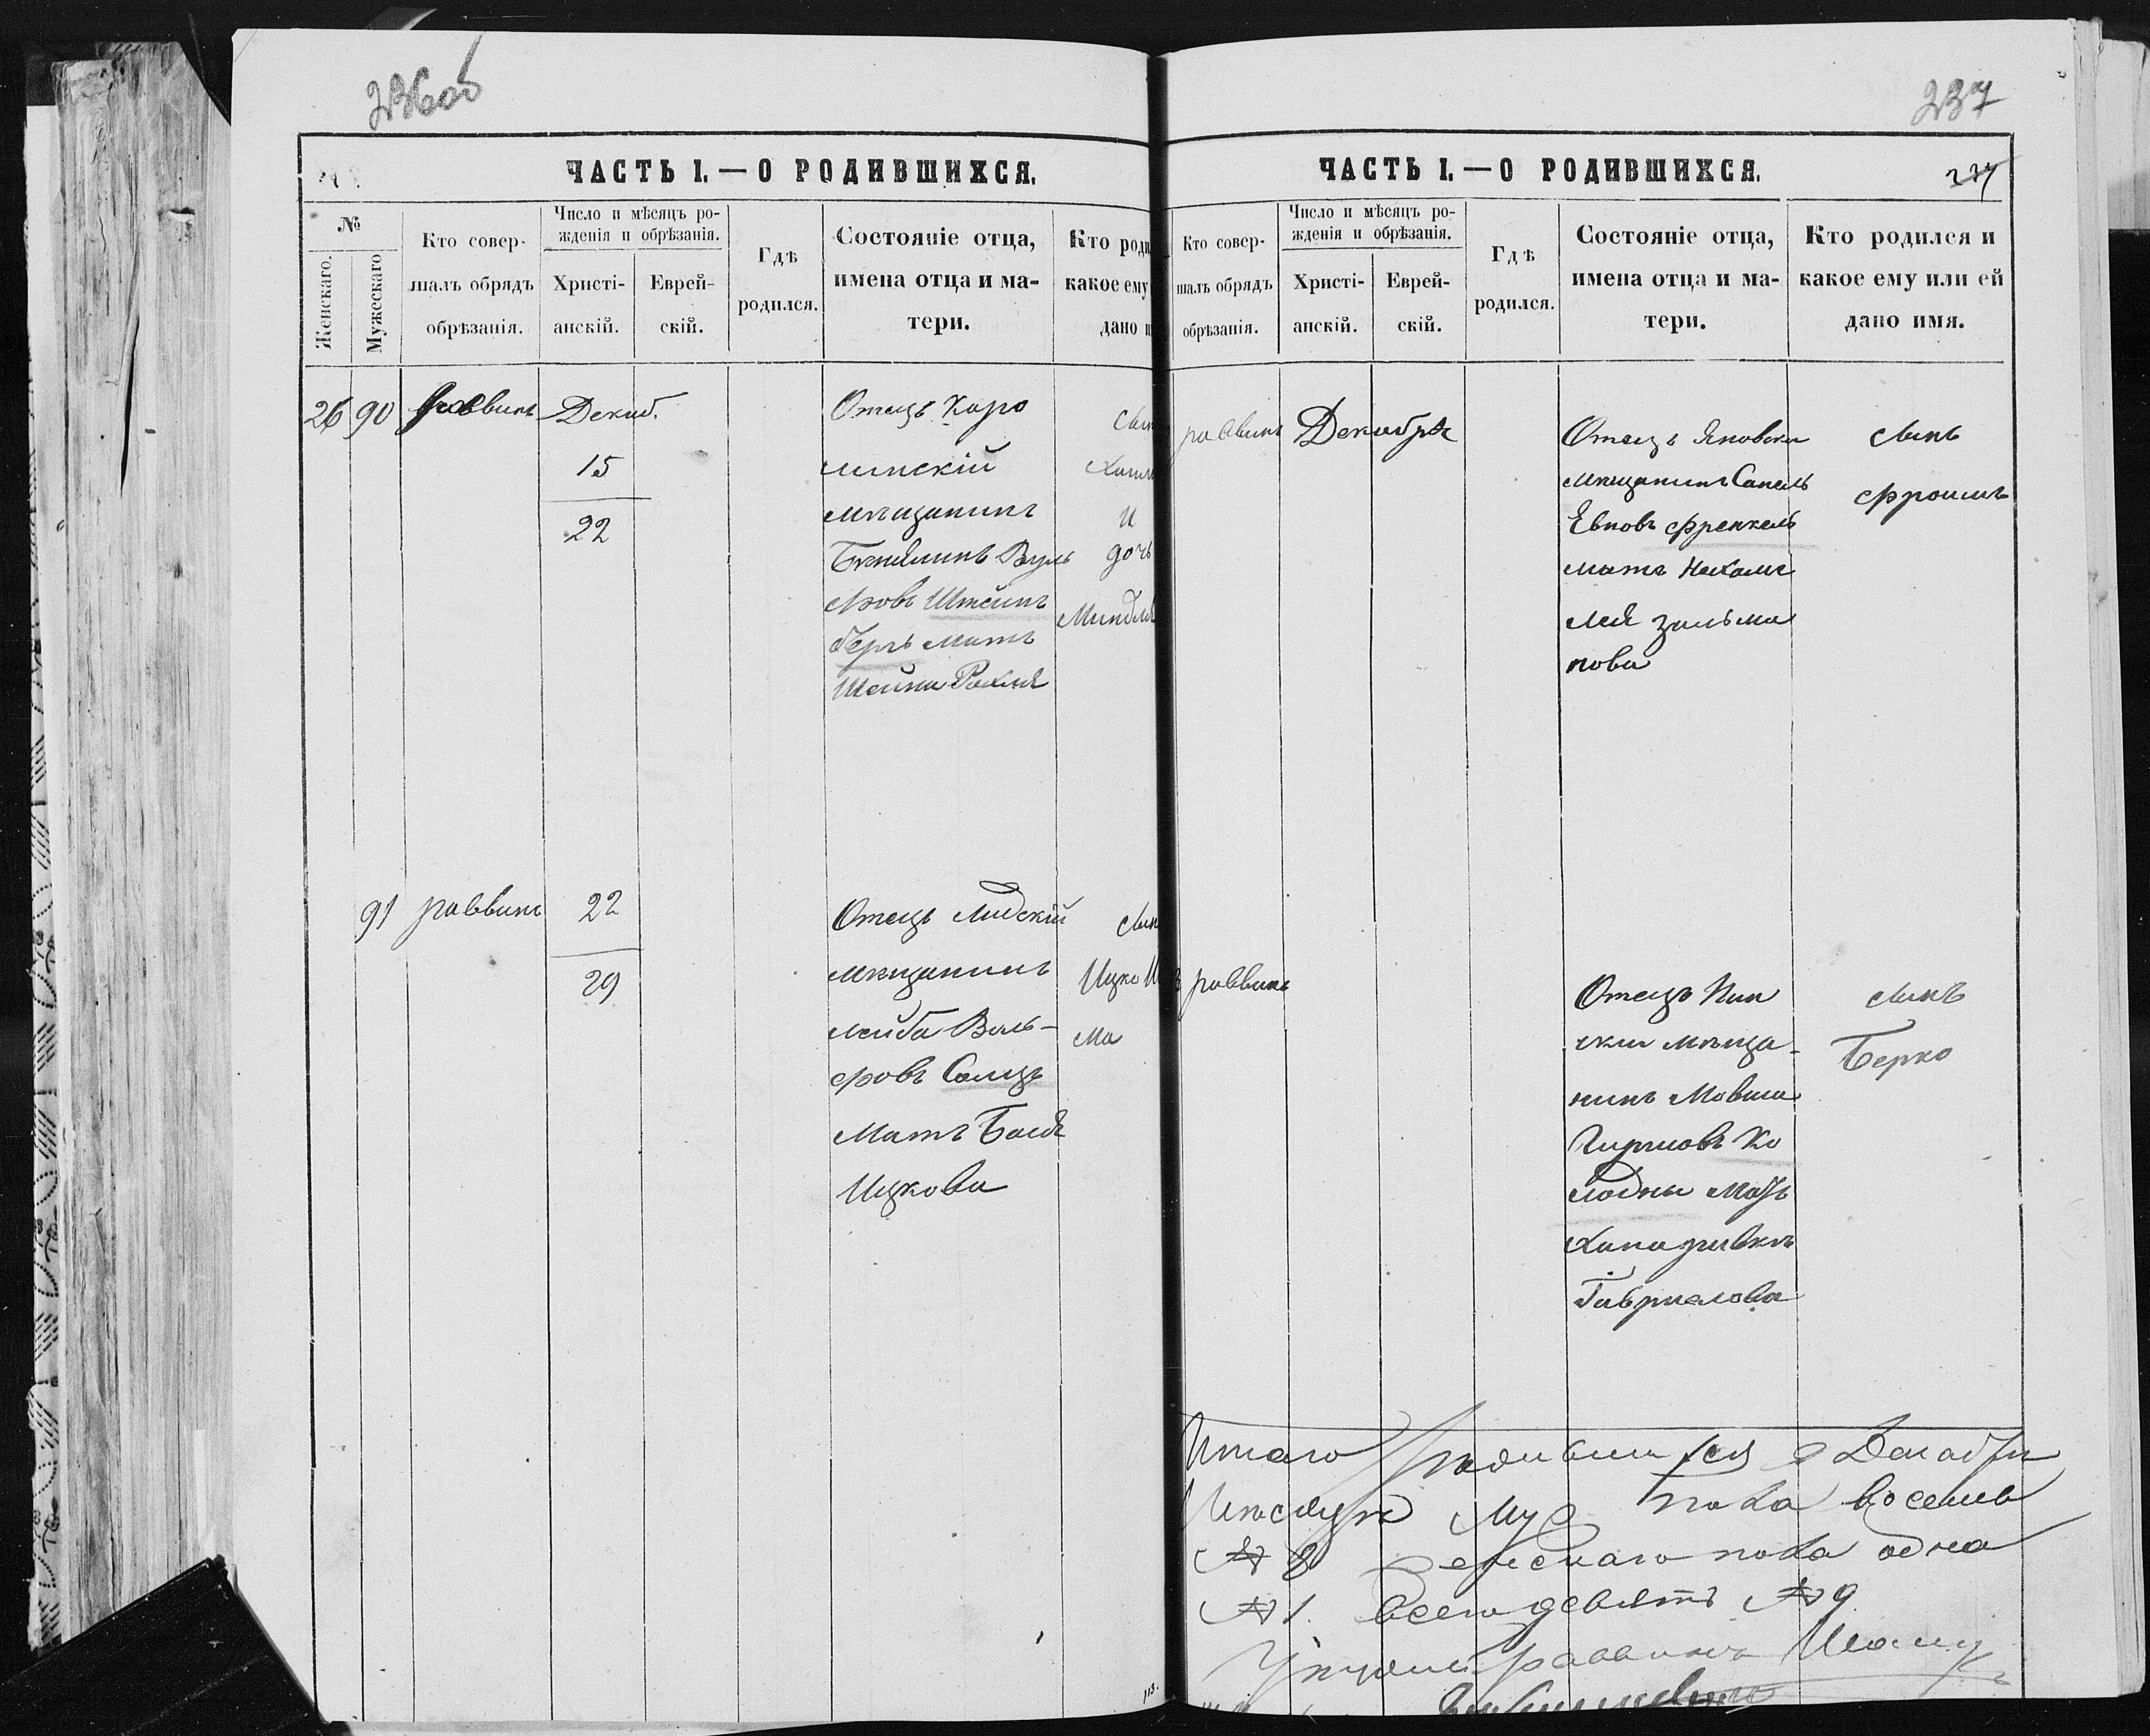 236об
ЧАСТЬ I. — О РОДИВШИХСЯ.
№
Женскаго.
Мужескаго
Кто совер-
шалъ обрядъ
обрѣзанія.
Число и мѣсяцъ ро-
жденія и обрѣзанія.
Христі-
анскій.
Еврей-
скій.
Гдѣ
родился.
Состояніе отца,
имена отца и ма-
тери.
Кто роди
какое ему
дано
26 90 раввинъ Декаб.
15
22
Отецъ Каро
линскій
мѣщанинъ
Беніаминъ Вуль
фовъ Штейнъ
бергъ мать
Шейна Рохля
сын
Хаим
и
дочь
Миндля
91 раввинъ 22
29
Отецъ Лидскій
мѣщанинъ
Лейба Воль-
фовъ Солцъ
Мать Бася
Ицкова
сын
Ицко
ма
113.
237
ЧАСТЬ I. — О РОДИВШИХСЯ.
Кто совер-
шалъ обрядъ
обрѣзанія.
Число и мѣсяцъ ро-
жденія и обрѣзанія.
Христі-
анскій.
Еврей-
скій.
Гдѣ
родился.
Состояніе отца,
имена отца и ма-
тери.
Кто родился и
какое ему или ей
дано имя.
раввинъ Декабрь
Отецъ Яновски
мѣщанинъ
Евновъ Френкель
мать Нехаме
Лея Зальма
нова
сынъ
Фроимъ
раввинъ
Отецъ Пин
ски мѣща-
нинъ Мовша
Гиршовъ Ко
лодны мать
Хана Ривка
Гавриелова
сынъ
Берко
Итаго родившихся в Декабри
Мѣсяцѣ Муж пола восемь
№ 8 женскаго пола одна
№ 1. всего девять № 9
раввинъ